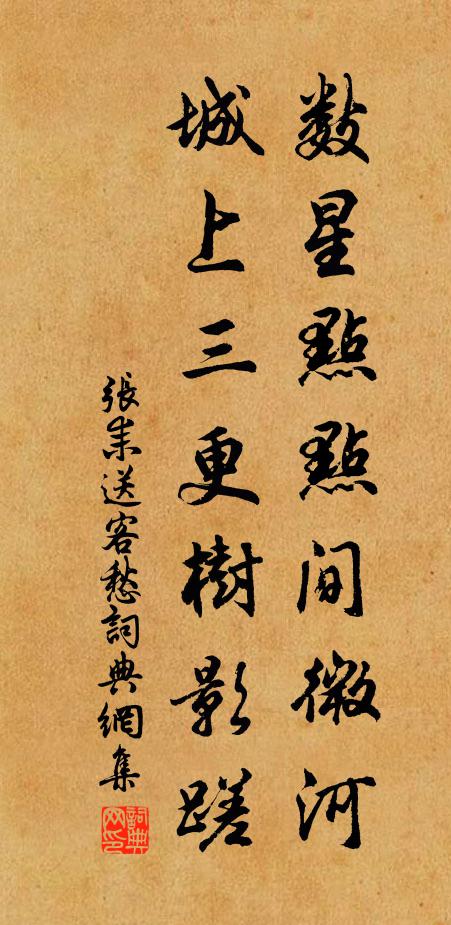 数星點點間微河
城上三更樹影蹉
張耒送客愁詞典網集
詞典网印